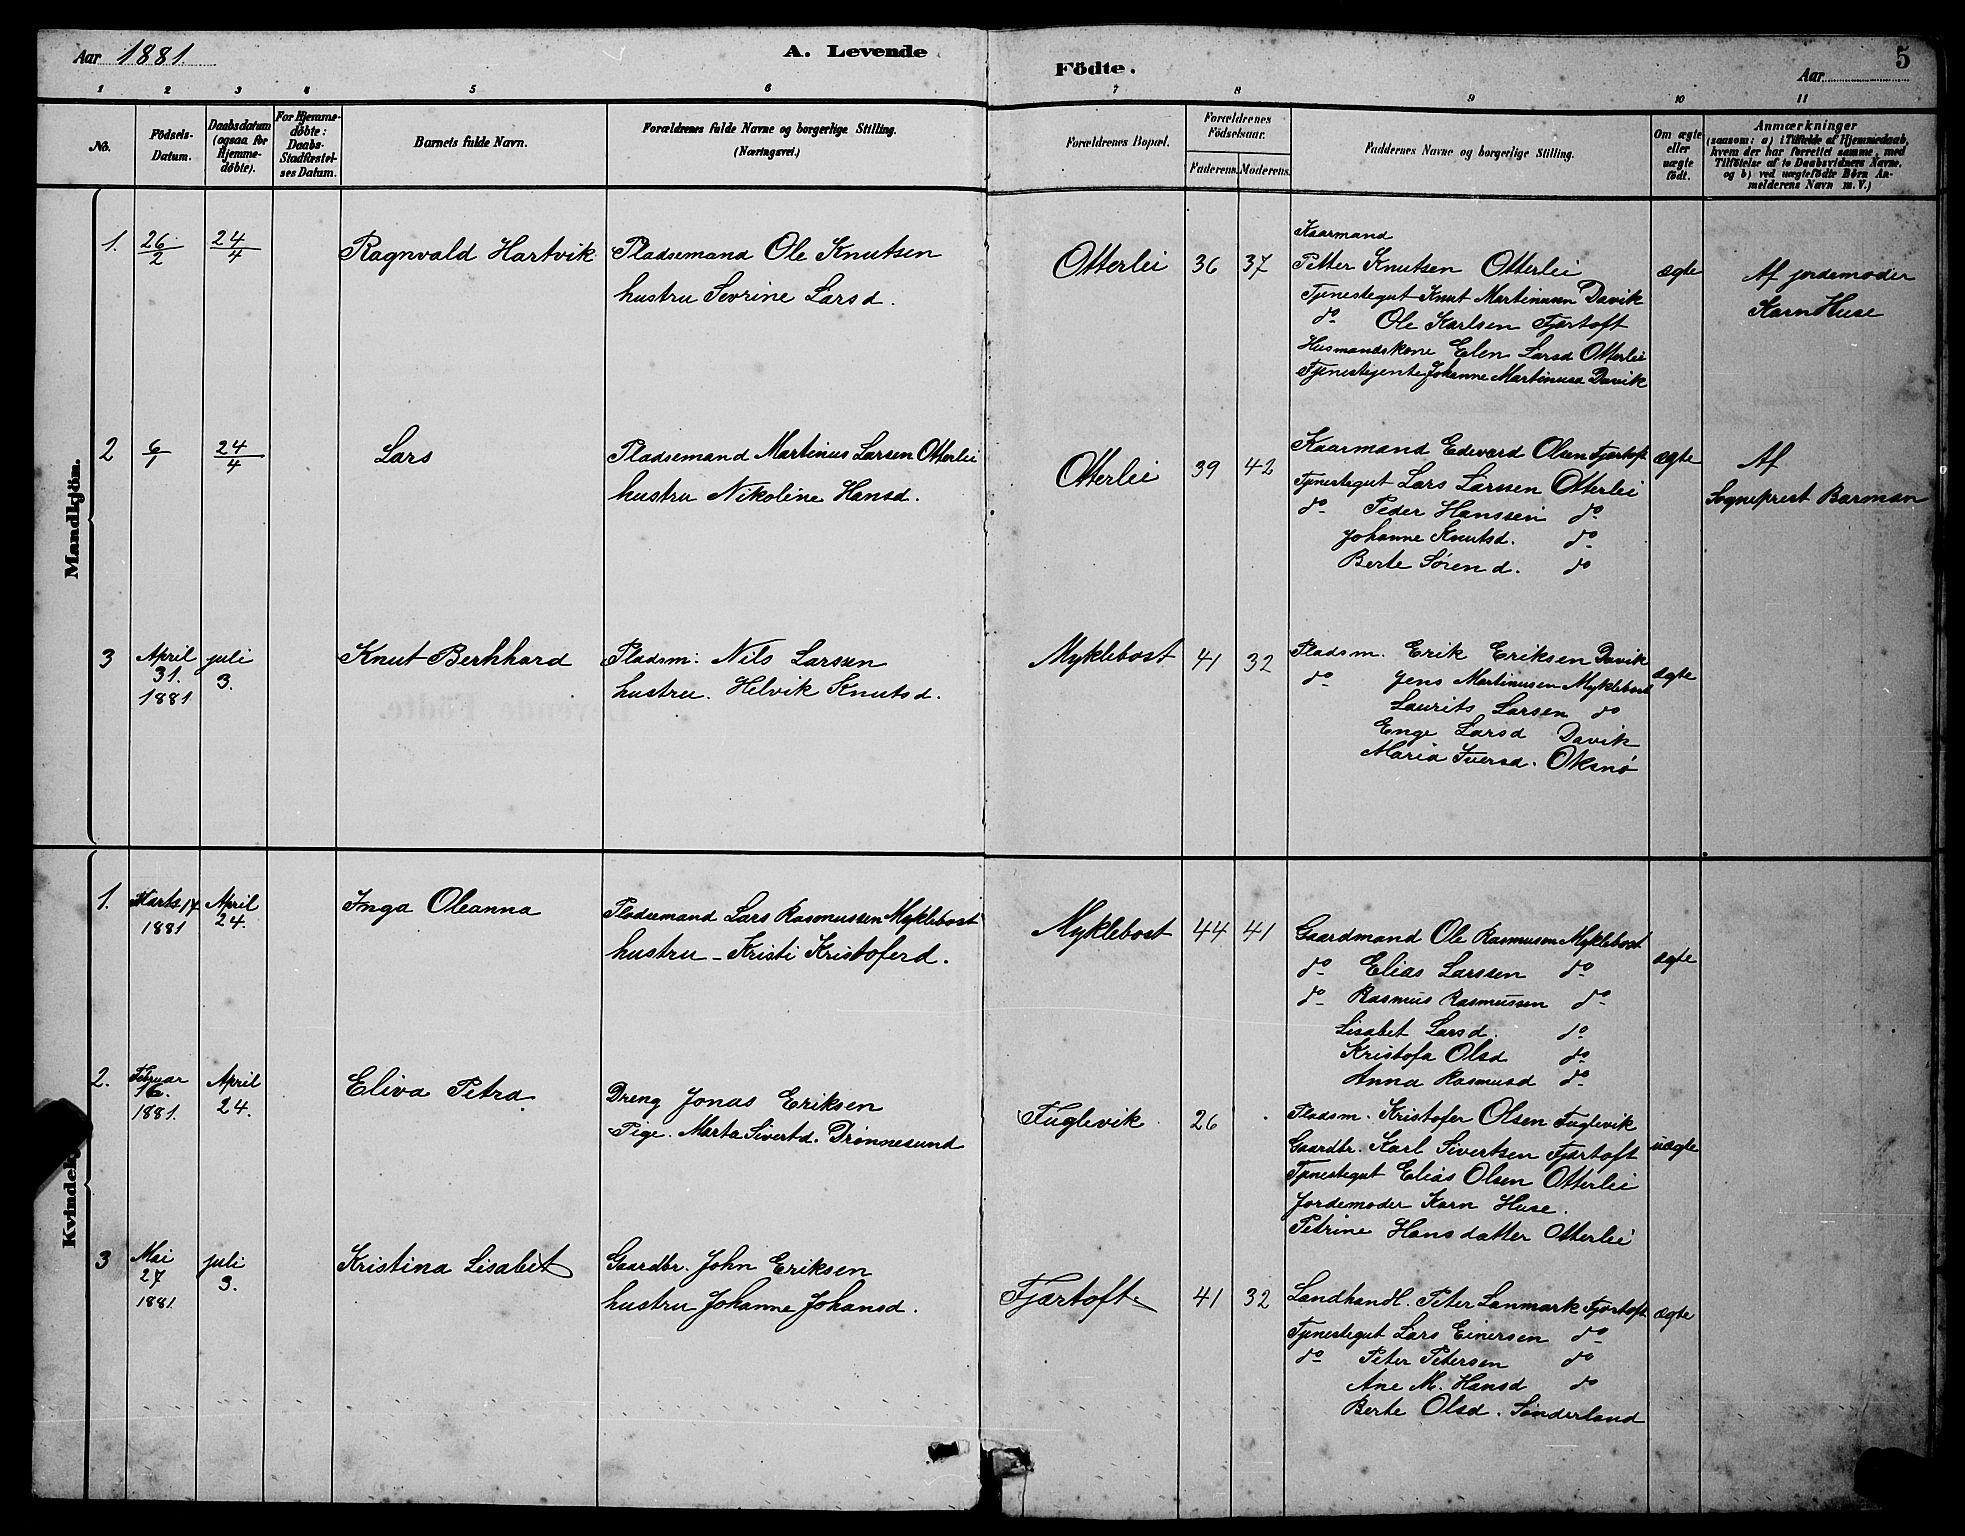 Aar 1881.
A. Levende
Födte.
Aar
5
1 2 3 4 5 6 7 8 9 10 11
No.
Födsels-
Datum.
Daabsdatum
(ogsaa for
Hjemme-
døbte).
For Hjemme-
døbte:
Daabs-
Stadfæstel-
ses Datum.
Barnets fulde Navn.
Forældrenes fulde Navne og borgerlige Stilling.
(Næringsvei.)
Forældrenes Bopæl.
Forældrenes
Födselsaar.
Faderens. Moderens.
Faddernes Navne og borgerlige Stilling.
Om ægte
eller
uægte
födt.
Anmærkninger
(saasom: a) i Tilfælde af Hjemmedaab,
hvem der har forrettet samme, med
Tilföielse af to Daabsvidners Navne,
og b) ved uægtefödte Börn An-
melderens Navn m. V.)
Mandkjön.
1. 26/2 24/4 Ragnvald Hartvik
Pladsemand Ole Knutsen
hustru Sevrine Larsd.
Otterlei 36 37
Kaarmand
Petter Knutsen Otterlei
Tjenestegut Knut Martinusen Davik
do Ole Karlsen Fjørtoft
Husmandskone Elen Larsd Otterlei
Tjenestejente Johanne Martinusd Davik
ægte
Af jordemoder
Karn Huse
2 6/1 24/4 Lars
Pladsemand Martinus Larsen Otterlei
hustru Nikoline Hansd.
Otterlei 39 42
Kaarmand Edevard Olsen Fjørtoft
Tjenestegut Lars Larssen Otterlei
do Peder Hanssen do
Johanne Knutsd. do
Berte Sørend. do
ægte
Af
Sogneprest Barman
3 April
31.
1881
juli
3.
Knut Bernhard
Pladsm. Nils Larsen
hustru. Helvik Knutsd.
Myklebost 41 32
Pladsm. Erik Eriksen Davik
do Jens Martinusen Myklebost
Laurits Larsen do
Enge Larsd Davik
Maria Iversd. Oksnø
ægte
Kvindekj
1. Marts 17
1881
April
24.
Inga Oleanna
Pladsemand Lars Rasmussen Myklebost
hustru - Kristi Kristoferd.
Myklebost 44 41
Gaardmand Ole Rasmusen Myklebost
do Elias Larssen do
do Rasmus Rasmussen do
Lisabet Larsd. do
Kristofa Olsd do
Anna Rasmusd do
ægte
2. Februar
16.
1881.
April
24.
Eliva Petra
Dreng Jonas Eriksen
Pige. Marta Sivertd. Drønnesund
Fuglevik. 26
Pladsm. Kristofer Olsen Fuglevik
Gaardbr. Karl Sivertsen Fjørtoft
Tjenestegut Elias Olsen Otterlei
Jordemoder Karn Huse.
Petrine Hansdatter Otterlei
uægte
3 Mai
27
1881.
juli
3.
Kristina Lisabet
Gaardbr. John Eriksen
hustru Johanne Johansd.
Fjørtoft. 41 32
Landhandl. Peter Lanmark Fjørtoft
Tjenestegut Lars Einersen do
do Peter Petersen do
Ane M. Hansd do
Berte Olsd. Sønderland
ægte